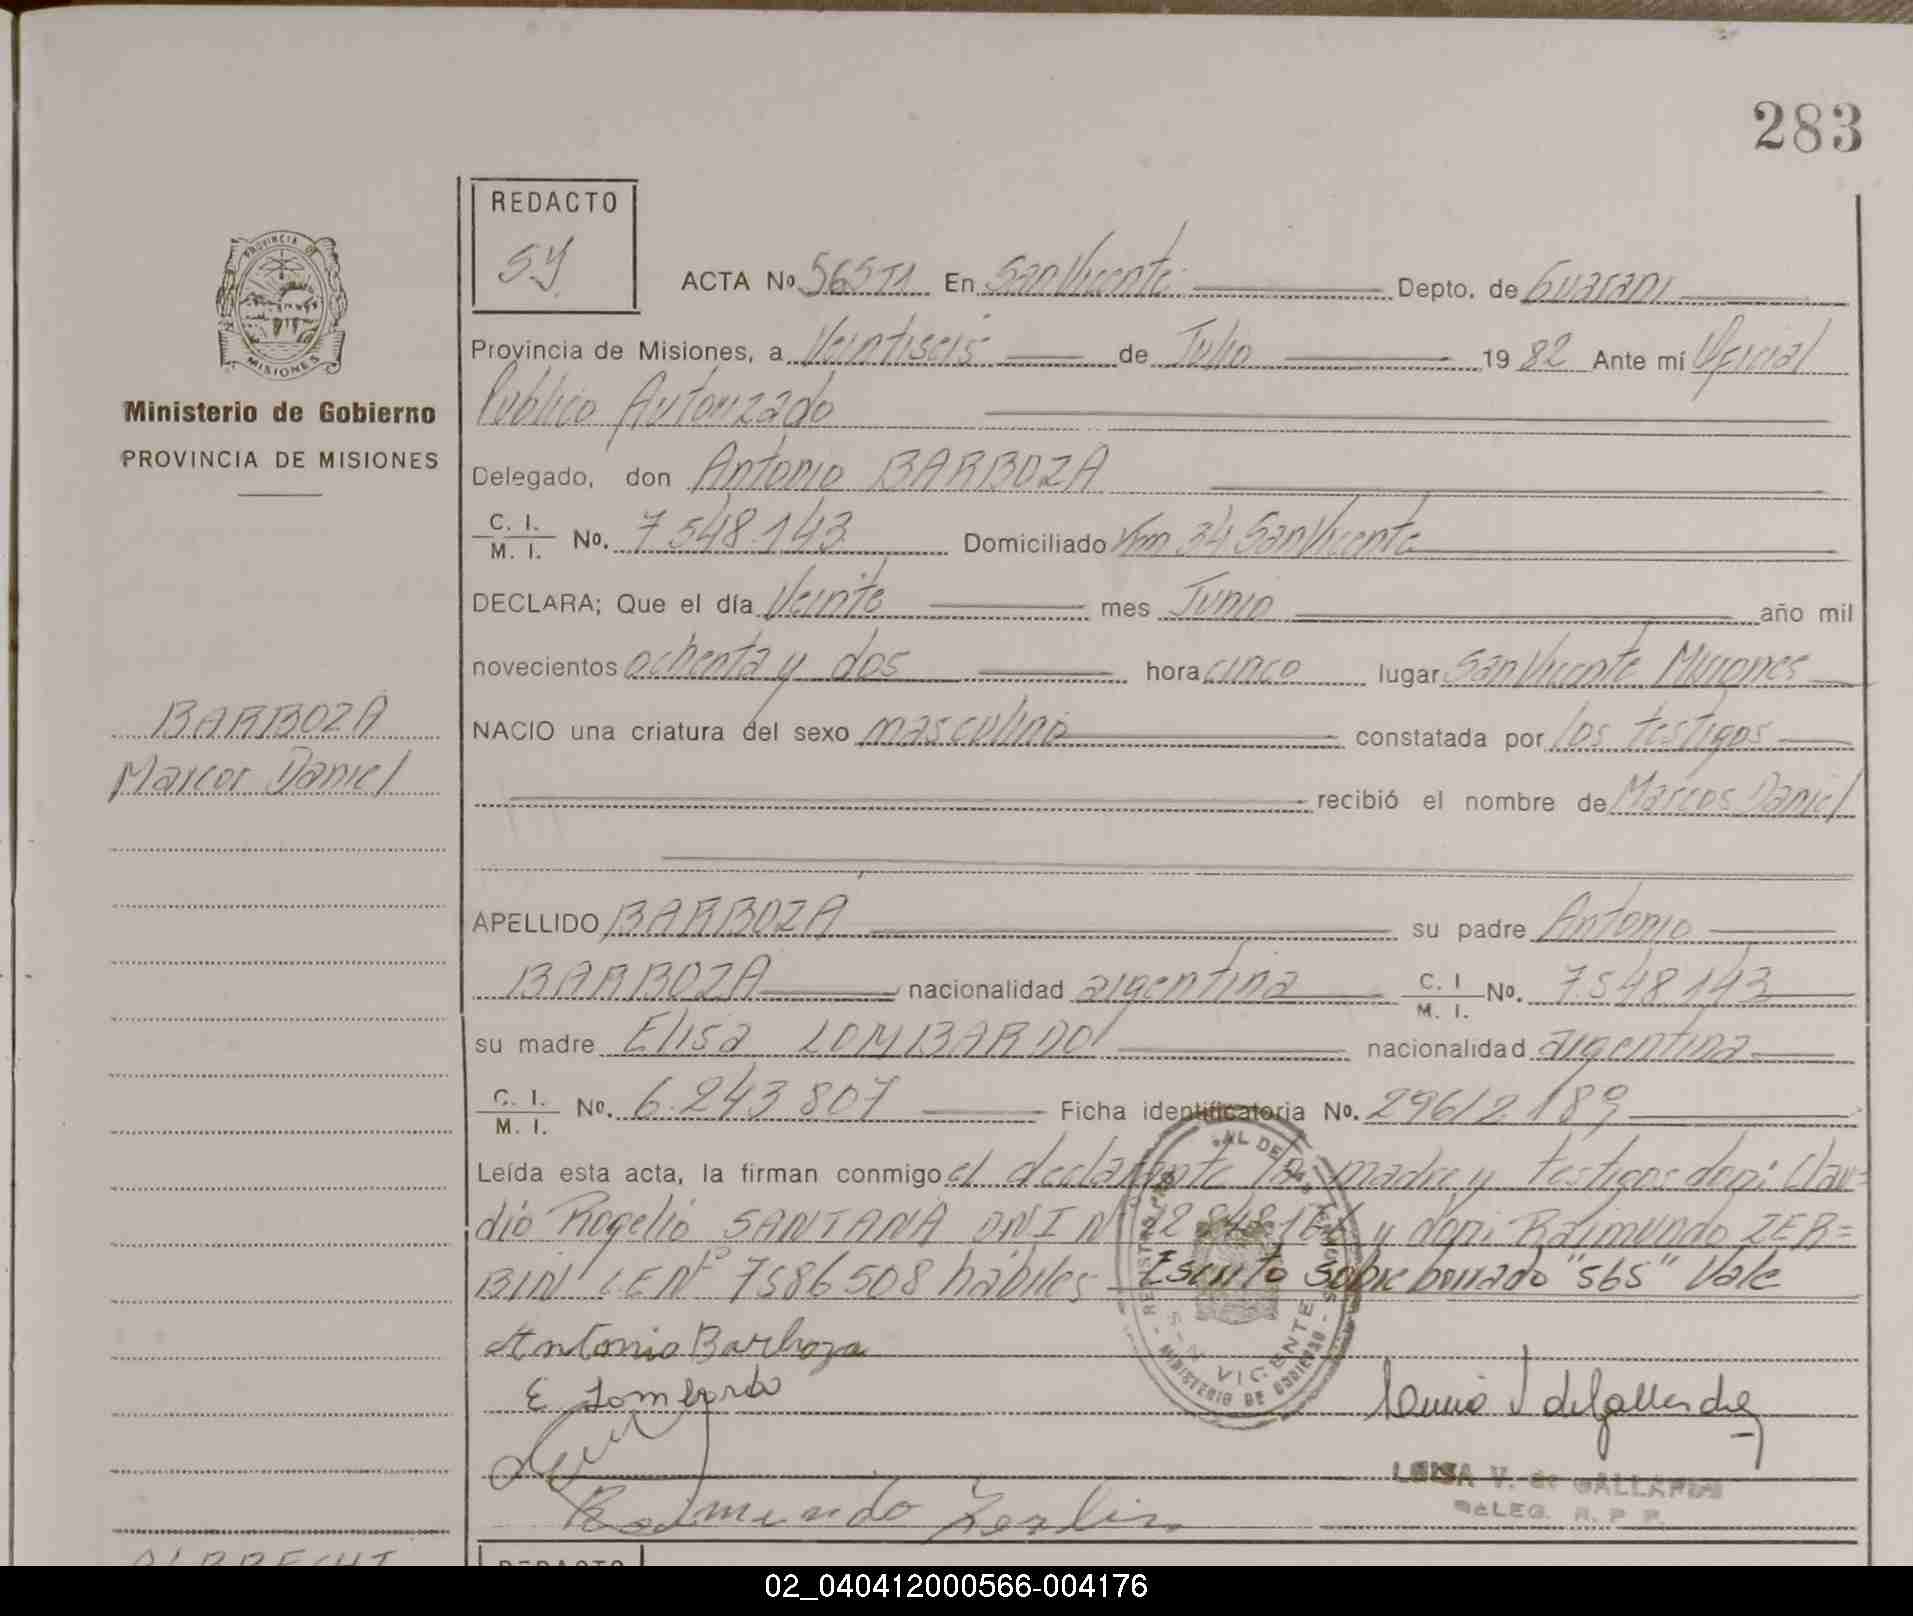 283
REDACTO
SY
ACTA No. 565 T1 En San Vicente Depto. de Guarani
PROVINCIA DE
MISIONES
Provincia de Misiones, a Veintiseis de Julio 1982 Ante mí Oficial
Ministerio de Gobierno
Publico Autorizado
PROVINCIA DE MISIONES
Delegado, don Antonio BARBOZA
C. I.
M. I. No. 7548.143 Domiciliado Km 34 San Vicente
DECLARA; Que el día Veinte mes Junio año mil
novecientos ochenta y dos hora cinco lugar San Vicente Misiones
BARBOZA
NACIO una criatura del sexo masculino constatada por los testigos
Marcos Daniel
recibió el nombre de Marcos Daniel
APELLIDO BARBOZA su padre Antonio
BARBOZA nacionalidad argentina C. I. M. I. No. 7.548.143
su madre Elisa LOMBARDO nacionalidad argentina
C. I.
M. I. No. 6.243.807 Ficha identificatoria No. 296/2.189
Leída esta acta, la firman conmigo el declarante la madre y testigos don: Clau=
dio Rogelio SANTANA DNI N° y don: Raimundo ZER=
BIN LE N° 7586508 hábiles Escrito sobre borrado "565" Vale
Antonio Barboza
E Lombardo
VICENTE
MINISTERIO DE GOBIERNO
LUISA V. de GALLARDO
DELEG. R. P. P.
Raimundo Zerbin
ALBRECHT
REDACTO
02_040412000566-004176